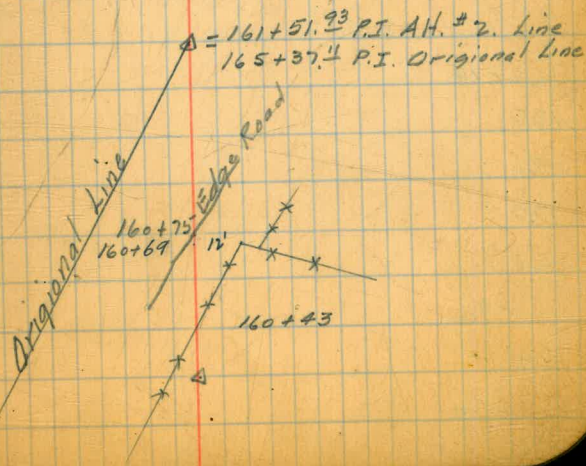 = 161+51.93 P.I. AH. #2. Line
165+37.11 P.I. Origional Line
Edge Road
Origional Line
160+75
160+69
12'
160+43